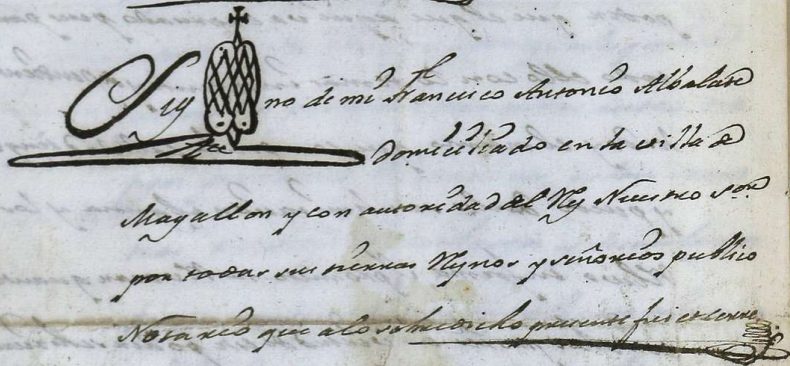 Sig no de mi Francisco Antonio Albalate
domiciliado en la villa de
Magallon y con autoridad del Rey Nuestro Sor
por todas sus tierras Reynos y señorios publico
Notario que a lo sobredicho presente fui et cerre